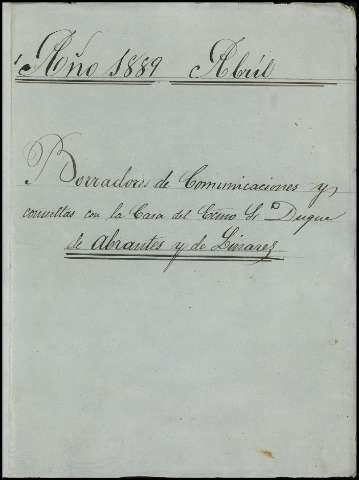 Año 1889 Abril
Borradores de Comunicaciones y
consultas con la Casa del Exmo Sr Duque
de Abrantes y de Linares